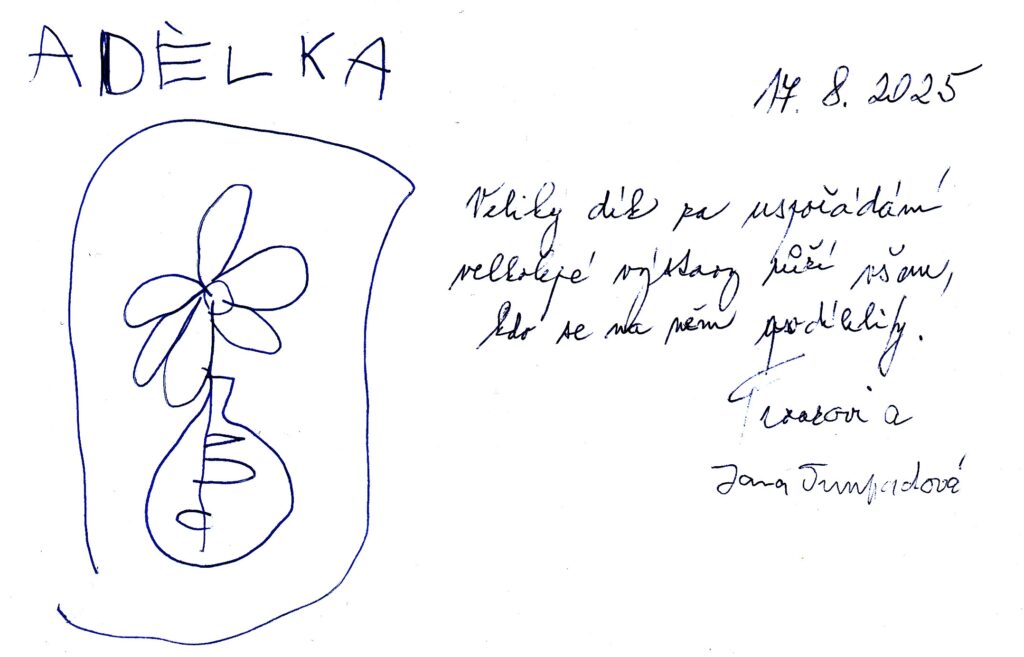 ADĚLKA
17. 8. 2025
Veliký dík za uspořádání
velkolepé výstavy růží všem,
kdo se na něm podíleli.
a
Jana